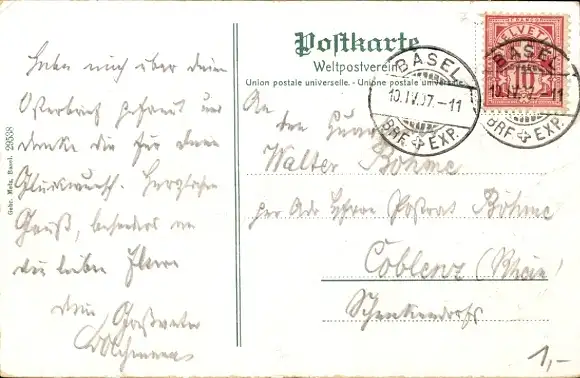 Postkarte
Weltpostverein
Union postale universelle. - Unione postale universale
HELVETIA
FRANCO
10
BASEL 1
10.IV.07.-11
BRF. EXP.
BASEL 1
10.IV.07.-11
BRF. EXP.
Gebr. Metz, Basel. 29538
Habe mich über deine
Osterbrief gefreut und
danke dir für deine
Glückwunsch. Herzlichen
Gruß, besonders an
die lieben Eltern
dein
An
den
Walter Böhme
per Adr Herrn Postrat Böhme
Coblenz (Rhein)
Schenkendorfstr
1,-